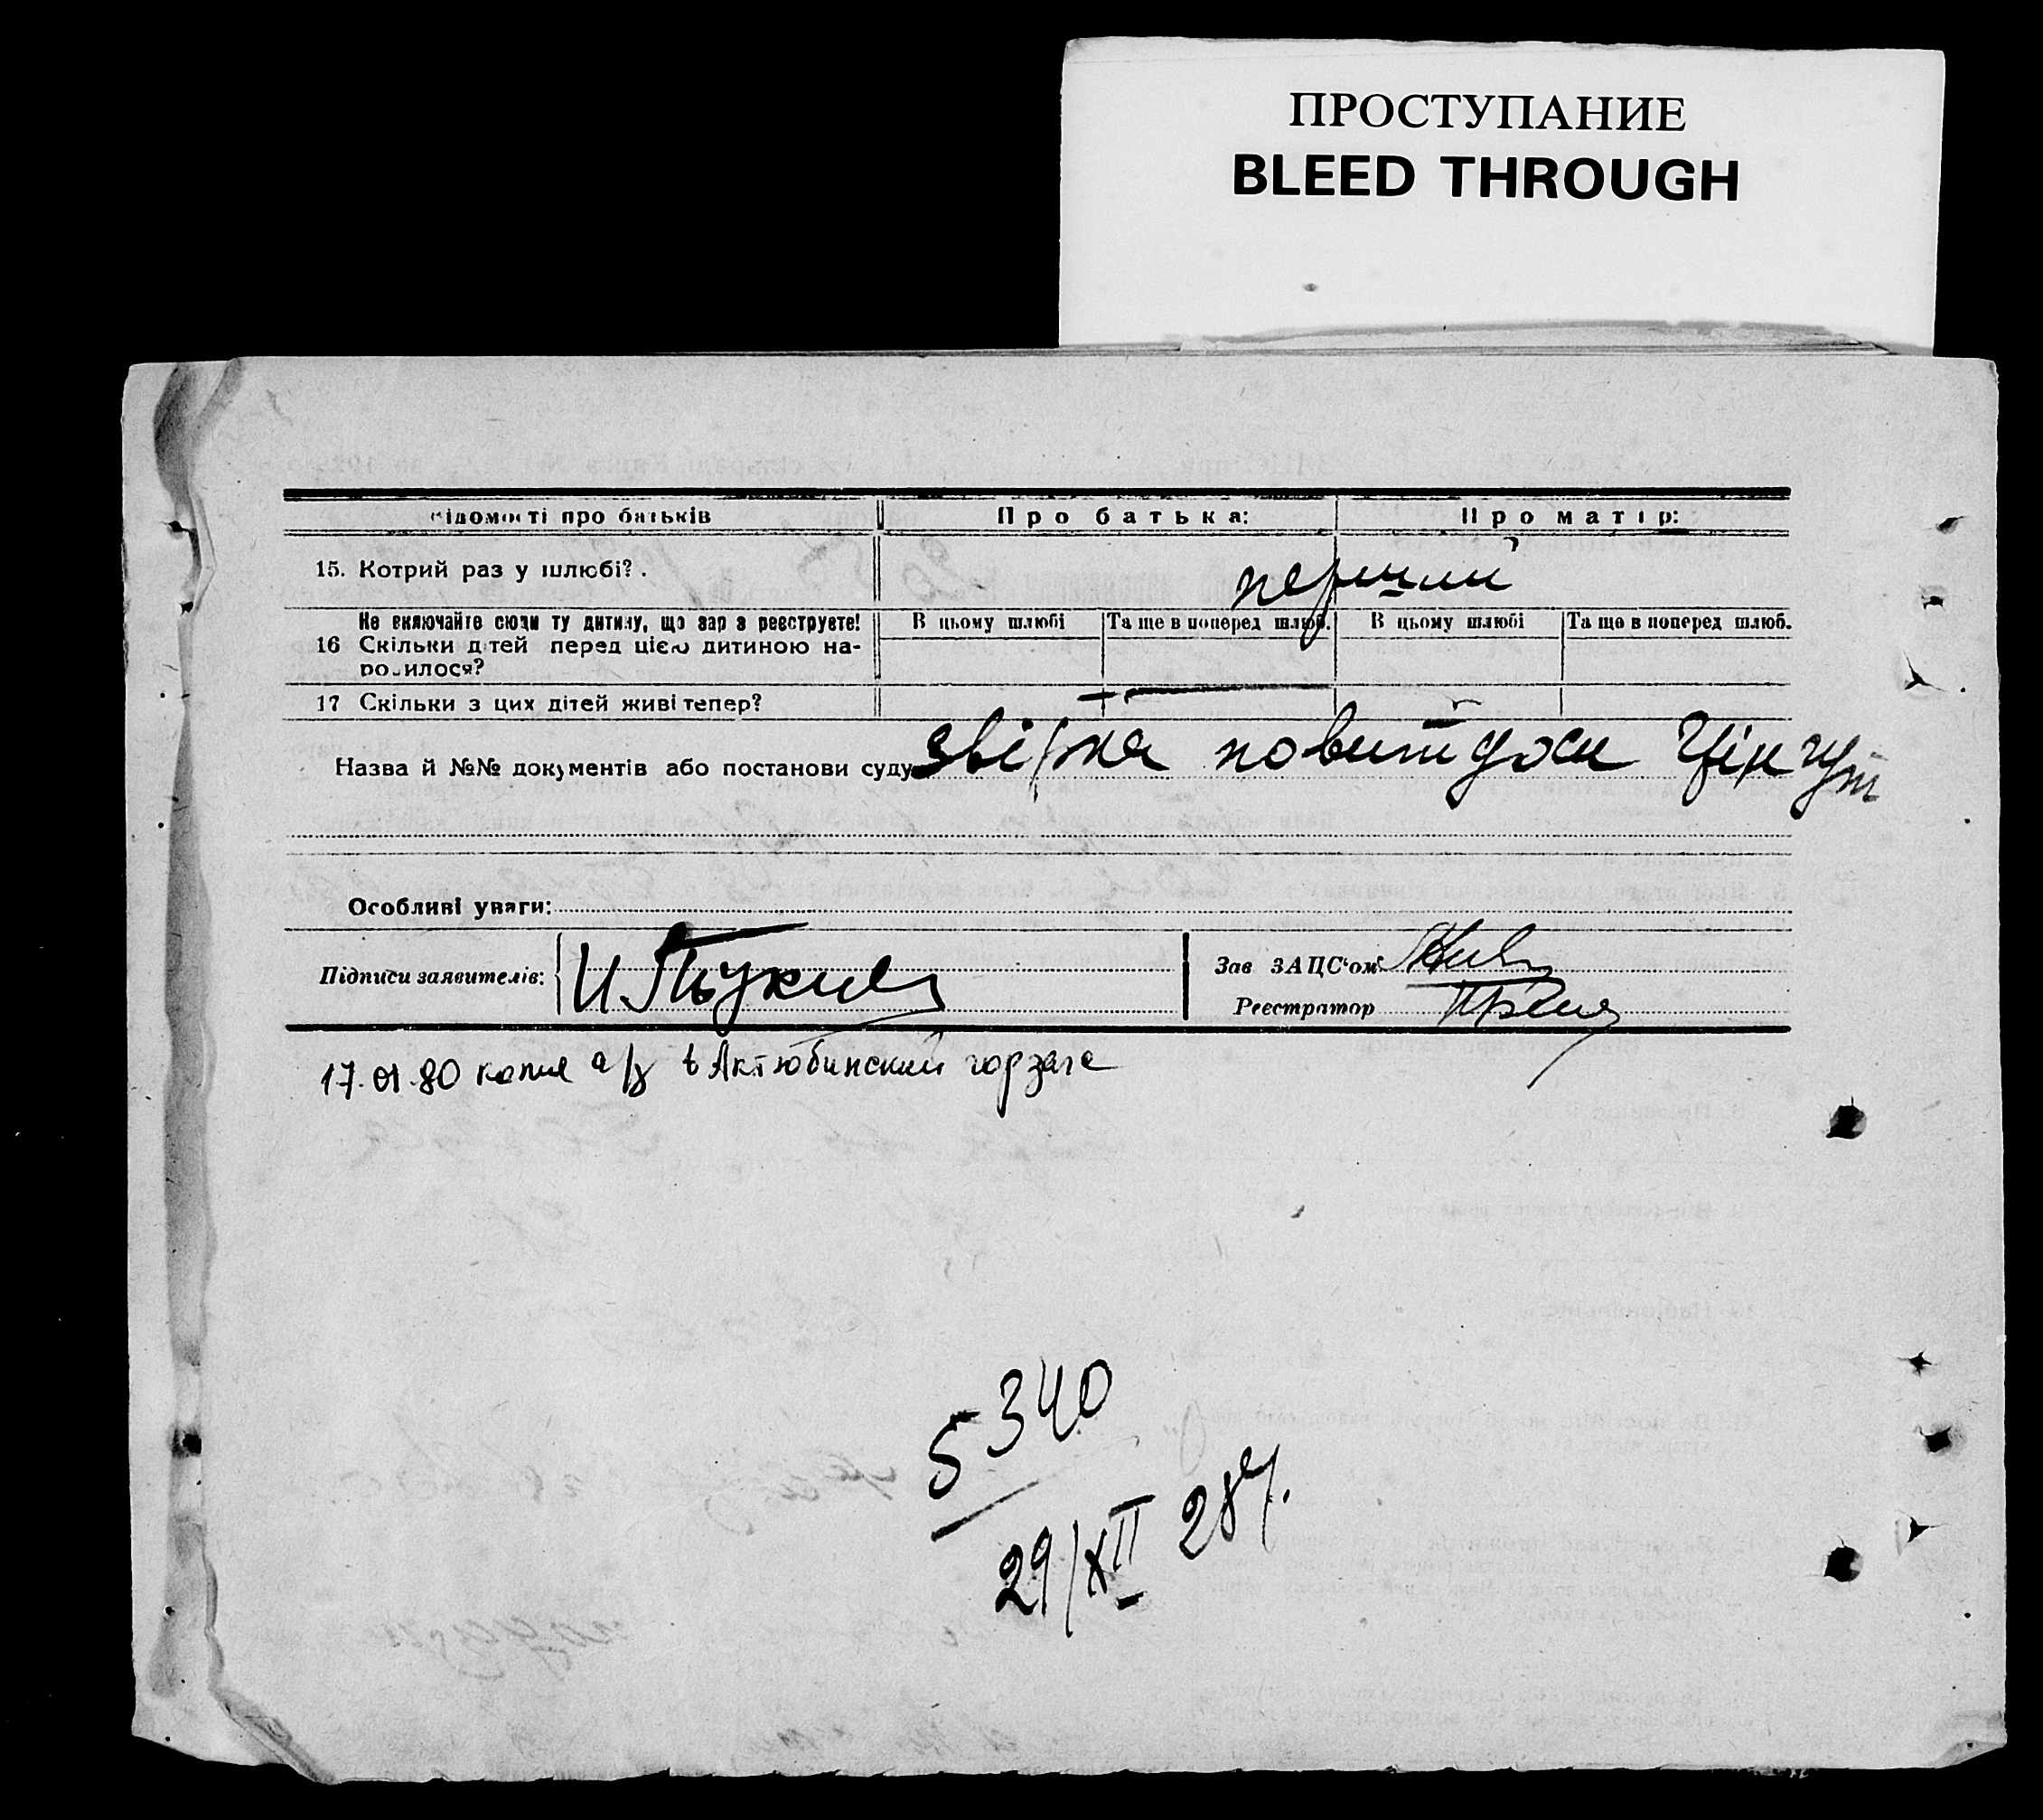 ПРОСТУПАНИЕ
BLEED THROUGH
Відомості про батьків Про батька: Про матір:
15. Котрий раз у шлюбі? . перший
Не включайте сюди ту дитину, що зараз реєструєте! В цьому шлюбі Та ще в поперед шлюб. В цьому шлюбі Та ще в поперед шлюб.
16 Скільки дітей перед цією дитиною на-
родилося?
17 Скільки з цих дітей живі тепер?
Назва й №№ документів або постанови суду
Особливі уваги:
Підписи заявителів:
Зав ЗАЦС'ом
Реєстратор
17.01.80 копия а/з в Актюбинский горзагс
5340
29/XII 28 р.